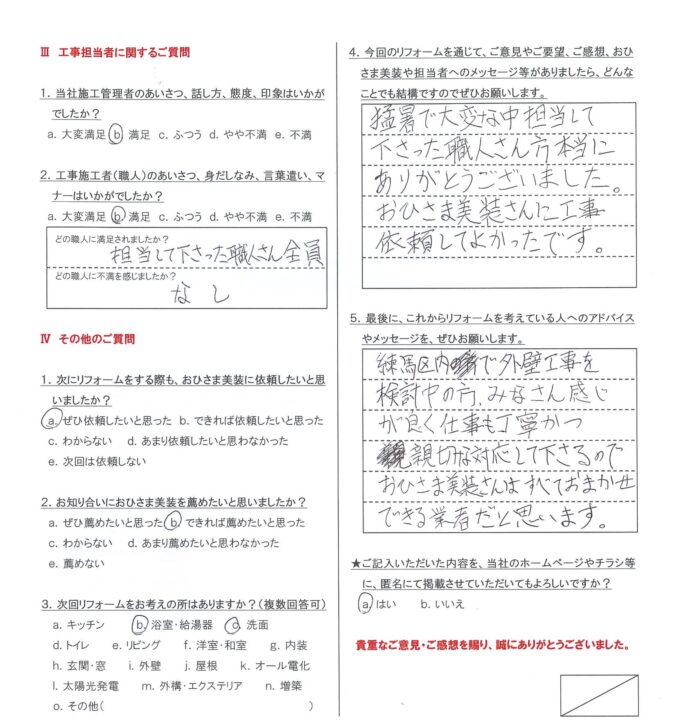 Ⅲ 工事担当者に関するご質問
1. 当社施工管理者のあいさつ、話し方、態度、印象はいかが
でしたか?
a. 大変満足 b. 満足 c. ふつう d. やや不満 e. 不満
2. 工事施工者(職人)のあいさつ、身だしなみ、言葉遣い、マ
ナーはいかがでしたか?
a. 大変満足 b. 満足 c. ふつう d. やや不満 e. 不満
どの職人に満足されましたか?
担当して下さった職人さん全員
どの職人に不満を感じましたか?
なし
Ⅳ その他のご質問
1. 次にリフォームをする際も、おひさま美装に依頼したいと思
いましたか?
a. ぜひ依頼したいと思った b. できれば依頼したいと思った
c. わからない d. あまり依頼したいと思わなかった
e. 次回は依頼しない
2. お知り合いにおひさま美装を薦めたいと思いましたか?
a. ぜひ薦めたいと思った b. できれば薦めたいと思った
c. わからない d. あまり薦めたいと思わなかった
e. 薦めない
3. 次回リフォームをお考えの所はありますか?(複数回答可)
a. キッチン b. 浴室・給湯器 c. 洗面
d.トイレ e. リビング f. 洋室・和室 g. 内装
h. 玄関・窓 i. 外壁 j. 屋根 k. オール電化
l. 太陽光発電 m. 外構・エクステリア n. 増築
o. その他( )
4. 今回のリフォームを通じて、ご意見やご要望、ご感想、おひ
さま美装や担当者へのメッセージ等がありましたら、どんな
ことでも結構ですのでぜひお願いします。
猛暑で大変な中担当して
下さった職人さん方本当に
ありがとうございました。
おひさま美装さんに工事
依頼してよかったです。
5. 最後に、これからリフォームを考えている人へのアドバイス
やメッセージを、ぜひお願いします。
練馬区内で外壁工事を
検討中の方、みなさん感じ
が良く仕事も丁寧かつ
親切な対応して下さるので
おひさま美装さんはすべておまかせ
できる業者だと思います。
★ご記入いただいた内容を、当社のホームページやチラシ等
に、匿名にて掲載させていただいてもよろしいですか?
a. はい b. いいえ
貴重なご意見・ご感想を賜り、誠にありがとうございました。